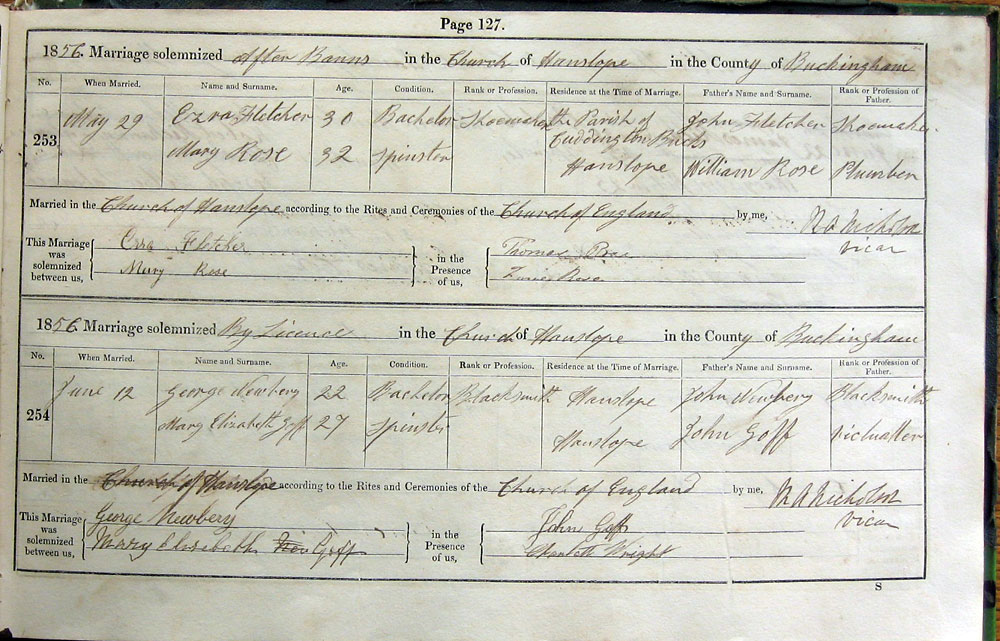 Page 127.
1856. Marriage solemnized After Banns in the Church of Hanslope in the County of Buckingham
No. When Married. Name and Surname. Age. Condition. Rank or Profession. Residence at the Time of Marriage. Father's Name and Surname. Rank or Profession of Father.
253 May 29 Ezra Fletcher 30 Bachelor Shoemaker the Parish of Cuddington Bucks John Fletcher Shoemaker
Mary Rose 32 Spinster Hanslope William Rose Plumber
Married in the Church of Hanslope according to the Rites and Ceremonies of the Church of England by me,
Vicar
This Marriage was solemnized between us, Ezra Fletcher
Mary Rose
in the Presence of us, Thomas
Rose
1856. Marriage solemnized By Licence in the Church of Hanslope in the County of Buckingham
No. When Married. Name and Surname. Age. Condition. Rank or Profession. Residence at the Time of Marriage. Father's Name and Surname. Rank or Profession of Father.
254 June 12 George Newbery 22 Bachelor Blacksmith Hanslope John Newbery Blacksmith
Mary Elizabeth Goff 27 Spinster Hanslope John Goff Victualler
Married in the Church of Hanslope according to the Rites and Ceremonies of the Church of England by me, M A Nicholson
Vicar
This Marriage was solemnized between us, George Newbery
Mary Elizabeth Goff
in the Presence of us, John Goff
Wright
S